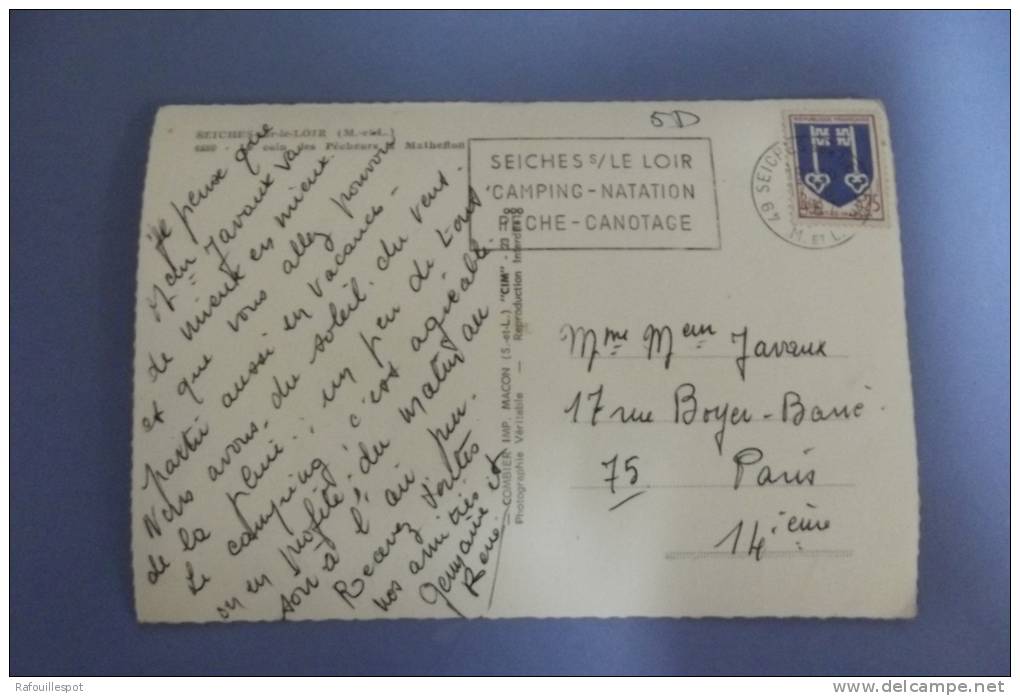 SEICHES-sur-le-LOIR (M.-et-L.)
coin des Pêcheurs à Matheflon
5D
SEICHES S/ LE LOIR
CAMPING - NATATION
PECHE - CANOTAGE
49 SEICHES
M. ET L.
REPUBLIQUE FRANÇAISE
0,25
Je pense que
Mr Javaux va
de mieux en mieux.
et que vous allez pouvoir
partir aussi en vacances.
Nous avons, du soleil. du vent.
de la pluie.; un peu de tout
Le camping; c'est agréable.
on en profite; du matin au
soir à l'air pur.
Recevez toutes
nos amitiés
Germaine et
René.
COMBIER IMP. MACON (S.-et-L.) "CIM"
Photographie Véritable — Reproduction Interdite
Mme Meur Javaux
17 rue Boyer-Barré.
75 Paris
14ième
Rafouillespot
delcampe.net